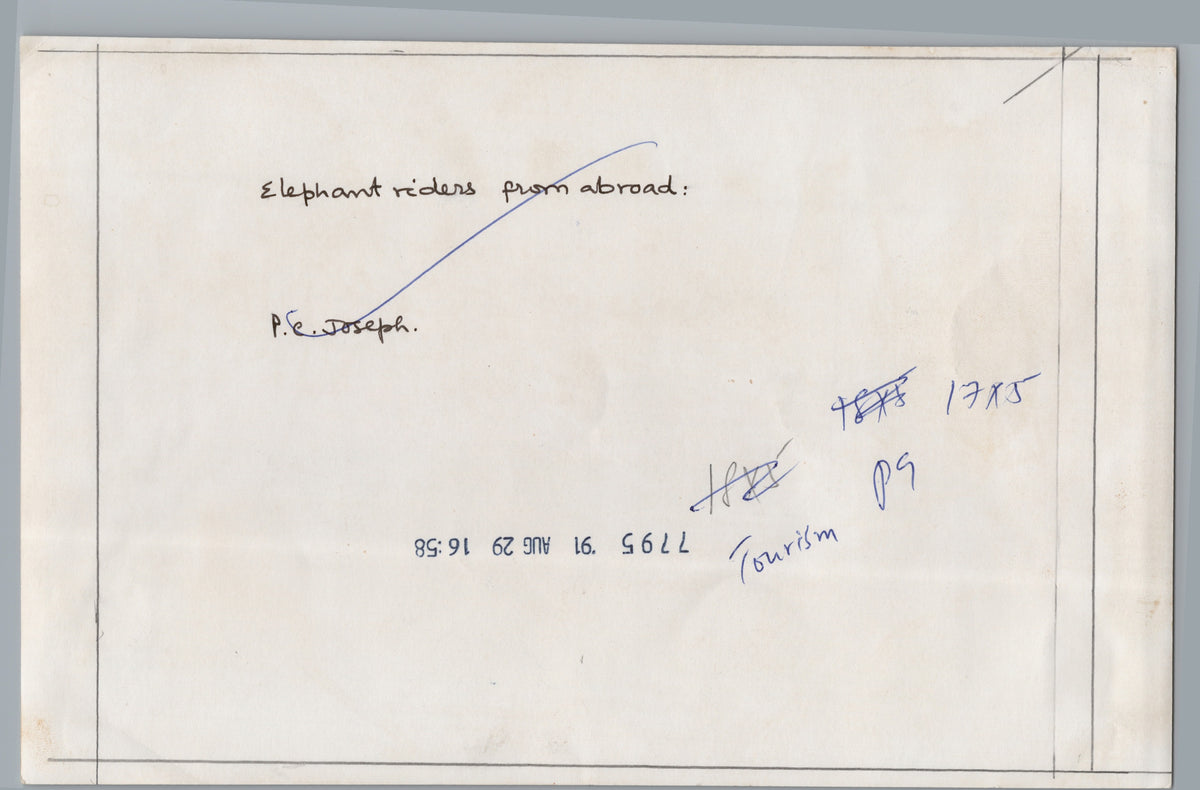 Elephant riders from abroad:
P.C. Joseph.
18x5 17x5
18x5
P9
7795 '91 AUG 29 16:58
Tourism